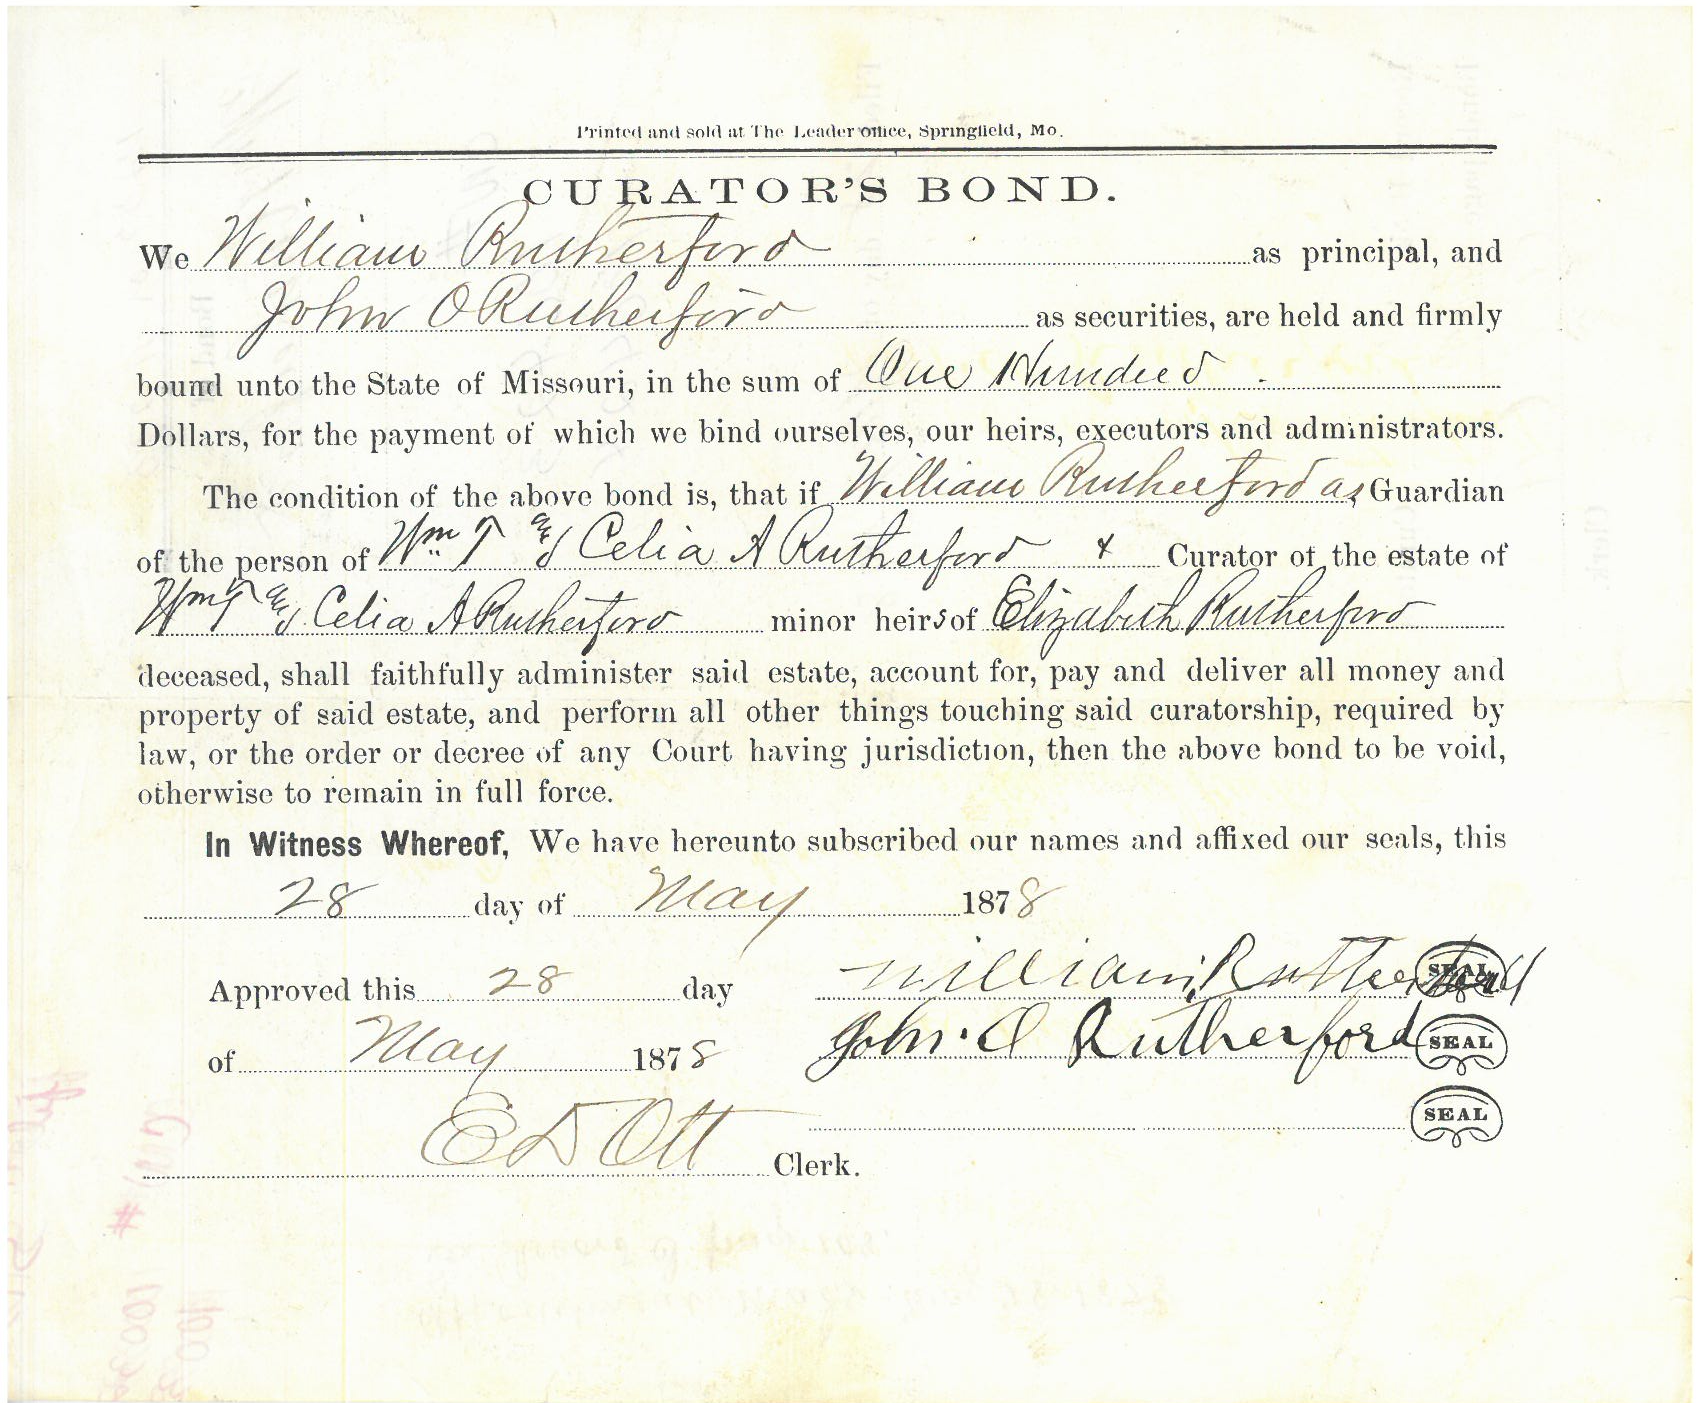 Printed and sold at The Leader office, Springfield, Mo.
CURATOR'S BOND.
We William Rutherford as principal, and
John O Rutherford as securities, are held and firmly
bound unto the State of Missouri, in the sum of One Hundred
Dollars, for the payment of which we bind ourselves, our heirs, executors and administrators.
The condition of the above bond is, that if William Rutherford as Guardian
of the person of Wm T and Celia A Rutherford & Curator of the estate of
Wm T and Celia A Rutherford minor heirs of Elizabeth Rutherford
deceased, shall faithfully administer said estate, account for, pay and deliver all money and
property of said estate, and perform all other things touching said curatorship, required by
law, or the order or decree of any Court having jurisdiction, then the above bond to be void,
otherwise to remain in full force.
In Witness Whereof, We have hereunto subscribed our names and affixed our seals, this
28 day of May 1878
Approved this 28 day William Rutherford SEAL
of May 1878 John O Rutherford SEAL
SEAL
E D Ott Clerk.